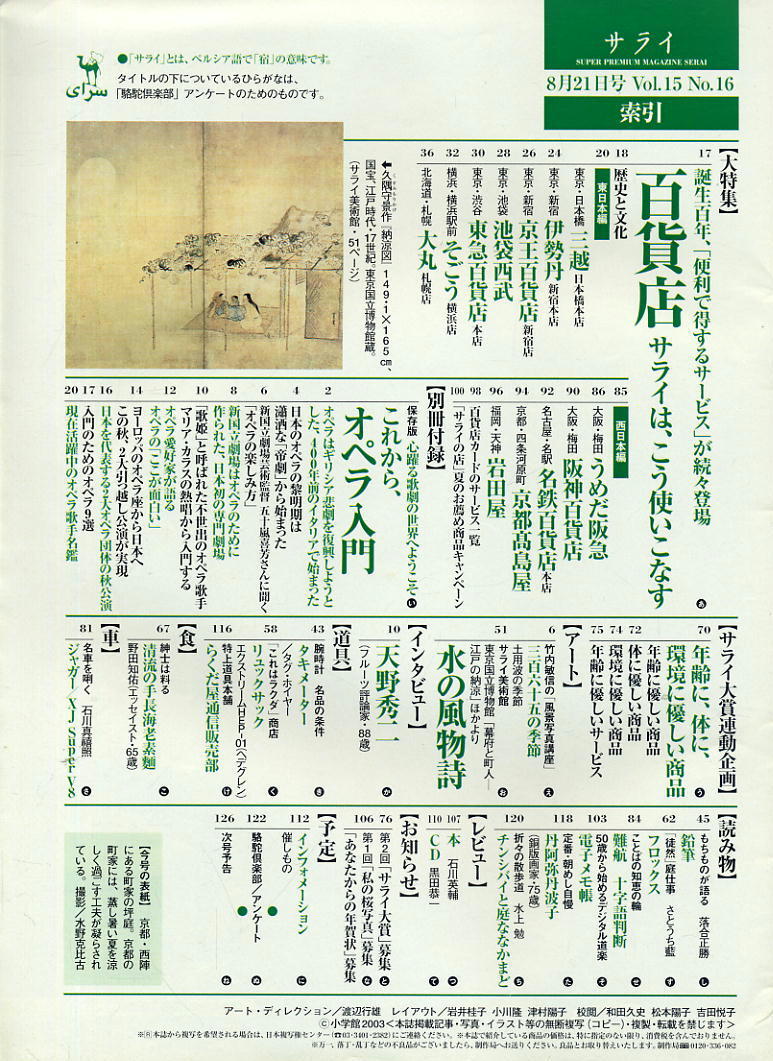 サライ
SUPER PREMIUM MAGAZINE SERAI
8月21日号 Vol.15 No.16
索引
●「サライ」とは、ペルシア語で「宿」の意味です。
タイトルの下についているひらがなは、
「駱駝倶楽部」アンケートのためのものです。
سرای
【大特集】
17 誕生百年、「便利で得するサービス」が続々登場
百貨店 サライは、こう使いこなす あ
18 歴史と文化
20 東日本編
東京・日本橋 三越 日本橋本店
24 東京・新宿 伊勢丹 新宿本店
26 東京・新宿 京王百貨店 新宿店
28 東京・池袋 池袋西武
30 東京・渋谷 東急百貨店 本店
32 横浜・横浜駅前 そごう 横浜店
36 北海道・札幌 大丸 札幌店
←久隅守景作『納涼図』149・1×165㎝、
国宝、江戸時代・17世紀。東京国立博物館蔵。
(サライ美術館・51ページ)
85 西日本編
86 大阪・梅田 うめだ阪急
90 大阪・梅田 阪神百貨店
92 名古屋・名駅 名鉄百貨店 本店
94 京都・四条河原町 京都髙島屋
96 福岡・天神 岩田屋
98 百貨店カードのサービス一覧
100 「サライの店」夏のお薦め商品キャンペーン
【別冊付録】
保存版 心躍る歌劇の世界へようこそ い
これから、
オペラ入門
2 オペラはギリシア悲劇を復興しようと
した、400年前のイタリアで始まった
4 日本のオペラの黎明期は
瀟洒な「帝劇」から始まった
6 新国立劇場芸術監督 五十嵐喜芳さんに聞く
「オペラの楽しみ方」
8 新国立劇場はオペラのために
作られた、日本初の専門劇場
10 「歌姫」と呼ばれた不世出のオペラ歌手
マリア・カラスの熱唱から入門する
12 オペラ愛好家が語る
オペラの「ここが面白い」
14 ヨーロッパのオペラ座から日本へ
この秋、2大引っ越し公演が実現
16 日本を代表する2大オペラ団体の秋公演
17 入門のためのオペラ9選
20 現在活躍中のオペラ歌手名鑑
【サライ大賞連動企画】
70 年齢に、体に、
環境に優しい商品 う
72 年齢に優しい商品
体に優しい商品
74 環境に優しい商品
75 年齢に優しいサービス
【アート】
6 竹内敏信の「風景写真講座」
三百六十五の季節 え
土用波の季節
51 サライ美術館
東京国立博物館「幕府と町人―
江戸の納涼」ほかより
水の風物詩 お
【インタビュー】
10 天野秀二 か
(フルーツ評論家・88歳)
【道具】
43 腕時計 名品の条件
タキメーター き
/タグ・ホイヤー
58 「これはラクダ」商店
リュックサック く
エクストリームHEP-01(ヘデグレン)
116 特上道具本舗
らくだ屋通信販売部 け
【食】
67 紳士は料る
清流の手長海老素麺 こ
野田知佑(エッセイスト・65歳)
【車】
81 名車を嘶く 石川真禧照
ジャガー/XJ Super V8 さ
【読み物】
45 もちものが語る 落合正勝
鉛筆 し
62 「徒然」庭仕事 さとうち藍
フロックス す
84 ことばの知恵の輪
難航 十字語判断 せ
103 50歳から始めるデジタル道楽
電子メモ帳 そ
118 定番・朝めし自慢
丹阿弥丹波子 た
(銅版画家・75歳)
120 折々の散歩道 水上 勉
チンシバイと庭ななかまど ち
【レビュー】
107 本 石川英輔 つ
110 CD 黒田恭一 て
【お知らせ】
76 第2回「サライ大賞」募集 と
106 第1回「私の桜写真」募集 な
「あなたからの年賀状」募集
【予定】
112 インフォメーション に
催しもの
122 ●駱駝倶楽部/アンケート● ぬ
126 次号予告 ね
【今号の表紙】 京都・西陣
にある町家の坪庭。京都の
町家には、蒸し暑い夏を涼
しく過ごす工夫が凝らされ
ている。撮影/水野克比古
アート・ディレクション/渡辺行雄 レイアウト/岩井桂子 小川隆 津村陽子 校閲/和田久史 松本陽子 吉田悦子
©小学館2003<本誌掲載記事・写真・イラスト等の無断複写(コピー)・複製・転載を禁じます>
※Ⓡ本誌から複写を希望される場合は、日本複写権センター(☎03-3401-2382)にご連絡ください。 ※本誌で紹介している商品の価格は、特に指定のない限り、消費税を含んでおりません。
※万一、落丁・乱丁などの不良品がございましたら、制作局へお送りください。良品とお取り替えいたします。制作局 0120-336-082